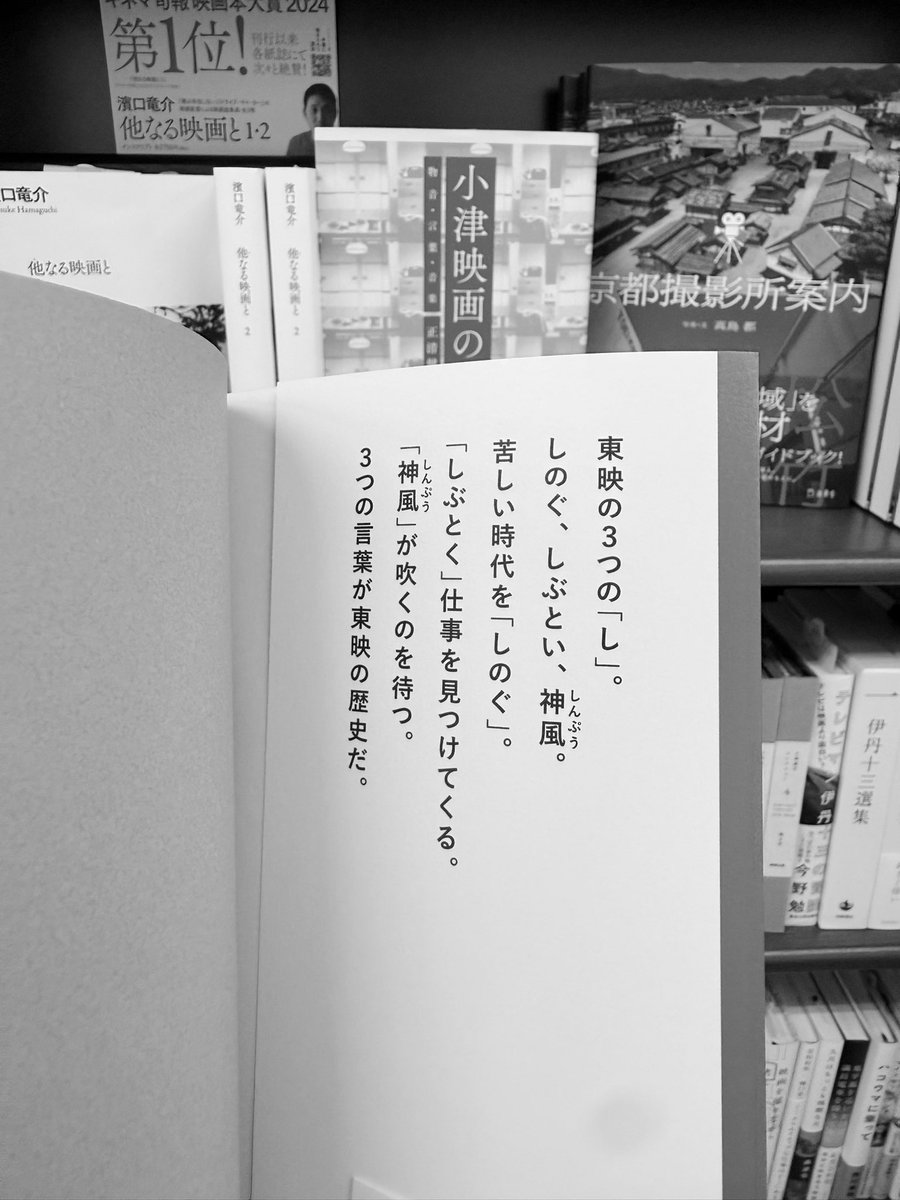 キネマ旬報 映画本大賞 2024
第1位!
刊行以来
各紙誌にて
次々と絶賛!
濱口竜介
他なる映画と 1・2
口竜介
suke Hamaguchi
他なる映画と
濱口竜介 他なる映画と 2
濱口竜介 他なる映画と 2
小津映画の
物音・言葉・音楽
正清
京都撮影所案内
写真・文 高島 都
域」を
材
イドブック!
東映の3つの「し」。
しのぐ、しぶとい、神風。
しんぷう
苦しい時代を「しのぐ」。
「しぶとく」仕事を見つけてくる。
「神風」が吹くのを待つ。
しんぷう
3つの言葉が東映の歴史だ。
テレビマ
伊丹十三の
今野勉
伊丹十三選集
一
ハコウマに乗って